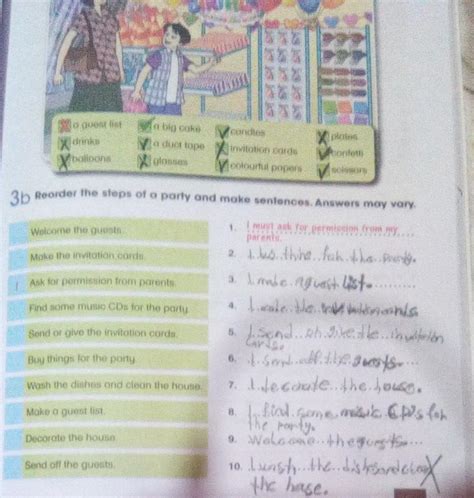 a guest list
a big cake
candles
plates
drinks
a duct tape
invitation cards
confetti
balloons
glasses
colourful papers
scissors
3b Reorder the steps of a party and make sentences. Answers may vary.
Welcome the guests.
Make the invitation cards.
1 Ask for permission from parents.
Find some music CDs for the party.
Send or give the invitation cards.
Buy things for the party.
Wash the dishes and clean the house.
Make a guest list.
Decorate the house.
Send off the guests.
1. I must ask for permission from my
parents.
2. I the party.
3. I make a guest list.
4. I the
5. I send or give the invitation
cards.
6. I send off the guests.
7. I decorate the house.
8. I find some music CD's for
the party.
9. Welcome the guests
10. I wash the dishes and
the house.